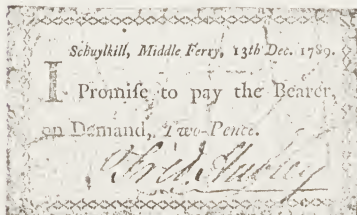 Schuylkill, Middle Ferry, 13th Dec. 1789.
I Promiſe to pay the Bearer,
on Demand, Two-Pence.